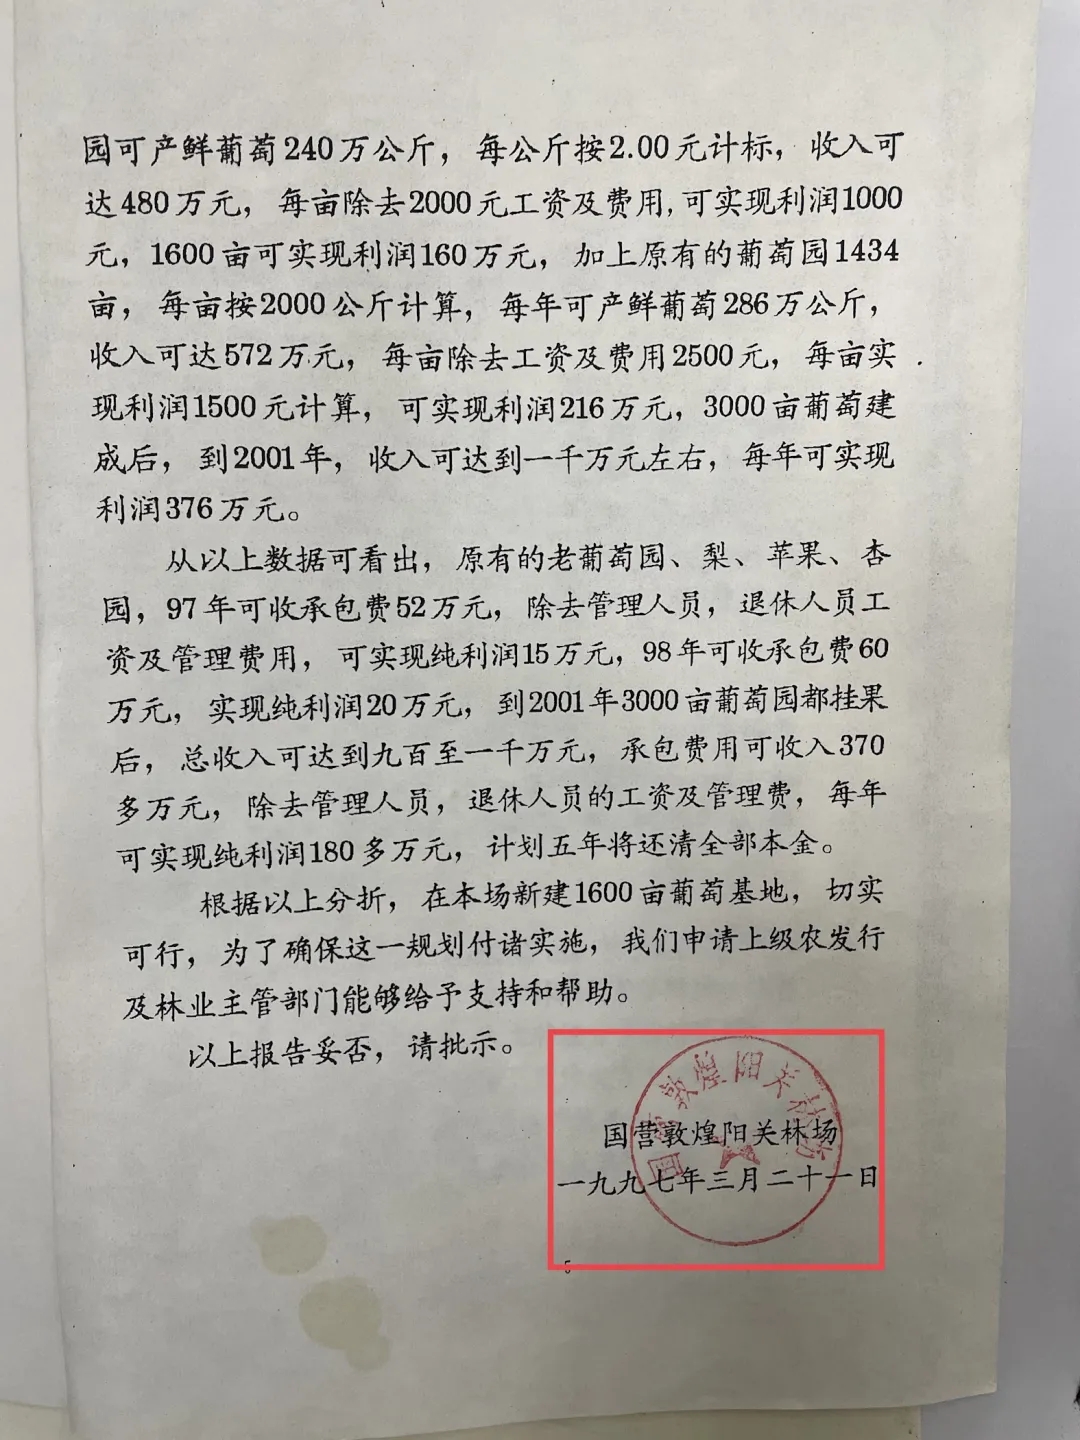 园可产鲜葡萄240万公斤，每公斤按2.00元计标，收入可
达480万元，每亩除去2000元工资及费用,可实现利润1000
元，1600亩可实现利润160万元，加上原有的葡萄园1434
亩，每亩按2000公斤计算，每年可产鲜葡萄286万公斤，
收入可达572万元，每亩除去工资及费用2500元，每亩实
现利润1500元计算，可实现利润216万元，3000亩葡萄建
成后，到2001年，收入可达到一千万元左右，每年可实现
利润376万元。
从以上数据可看出，原有的老葡萄园、梨、苹果、杏
园，97年可收承包费52万元，除去管理人员，退休人员工
资及管理费用，可实现纯利润15万元，98年可收承包费60
万元，实现纯利润20万元，到2001年3000亩葡萄园都挂果
后，总收入可达到九百至一千万元，承包费用可收入370
多万元，除去管理人员，退休人员的工资及管理费，每年
可实现纯利润180多万元，计划五年将还清全部本金。
根据以上分折，在本场新建1600亩葡萄基地，切实
可行，为了确保这一规划付诸实施，我们申请上级农发行
及林业主管部门能够给予支持和帮助。
以上报告妥否，请批示。
国营敦煌阳关林场
国营敦煌阳关林场
一九九七年三月二十一日
5